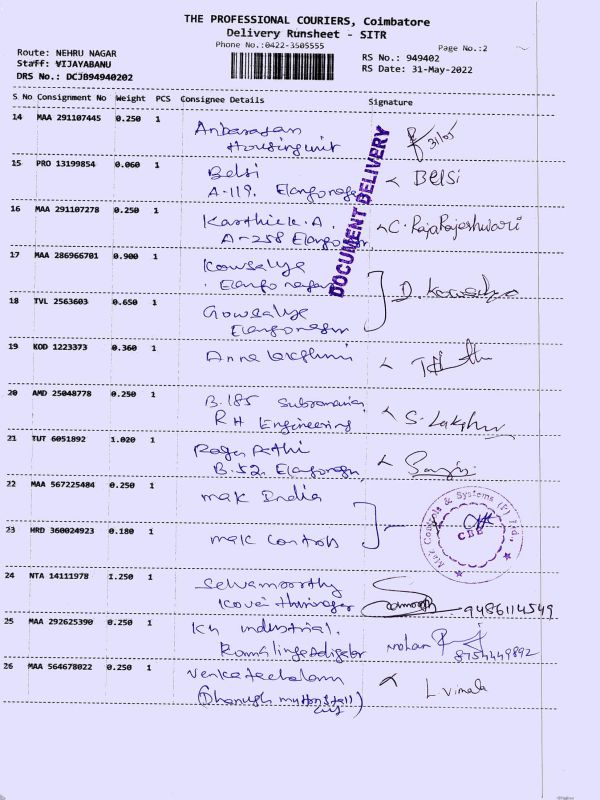 THE PROFESSIONAL COURIERS, Coimbatore
Delivery Runsheet - SITR
Phone No.:0422-3505555
Page No.:2
Route: NEHRU NAGAR
Staff: VIJAYABANU
DRS No.: DCJB94940202
RS No.: 949402
RS Date: 31-May-2022
S No Consignment No Weight PCS Consignee Details Signature
14 MAA 291107445 0.250 1 Anbarasan
Housing unit 31/05
15 PRO 13199854 0.060 1 Belsi
A-119, Elango nagar Belsi
16 MAA 291107278 0.250 1 Karthick.A.
A-258 Elango C. RajaRajeshwari
17 MAA 286966701 0.900 1 Kowsalya
Elango nagar D. Kowsalya
18 TVL 2563603 0.650 1 Gowsalya
Elango nagar
19 KOD 1223373 0.360 1 Anna lakshmi
20 AMD 25048778 0.250 1 B.185 Subramania
RH Engineering S. Lakshmi
21 TUT 6051892 1.020 1
B.52. Elango
22 MAA 567225484 0.250 1 mak India
23 HRD 360024923 0.180 1 mak controls
24 NTA 14111978 1.250 1 Selvamoorthy
9486114549
25 MAA 292625390 0.250 1 industrial.
mohan 8754449892
26 MAA 564678022 0.250 1 Venkatachalam
mutton stall L Vimala
DOCUMENT DELIVERY
Mak Controls & Systems (P) Ltd.,
CBE